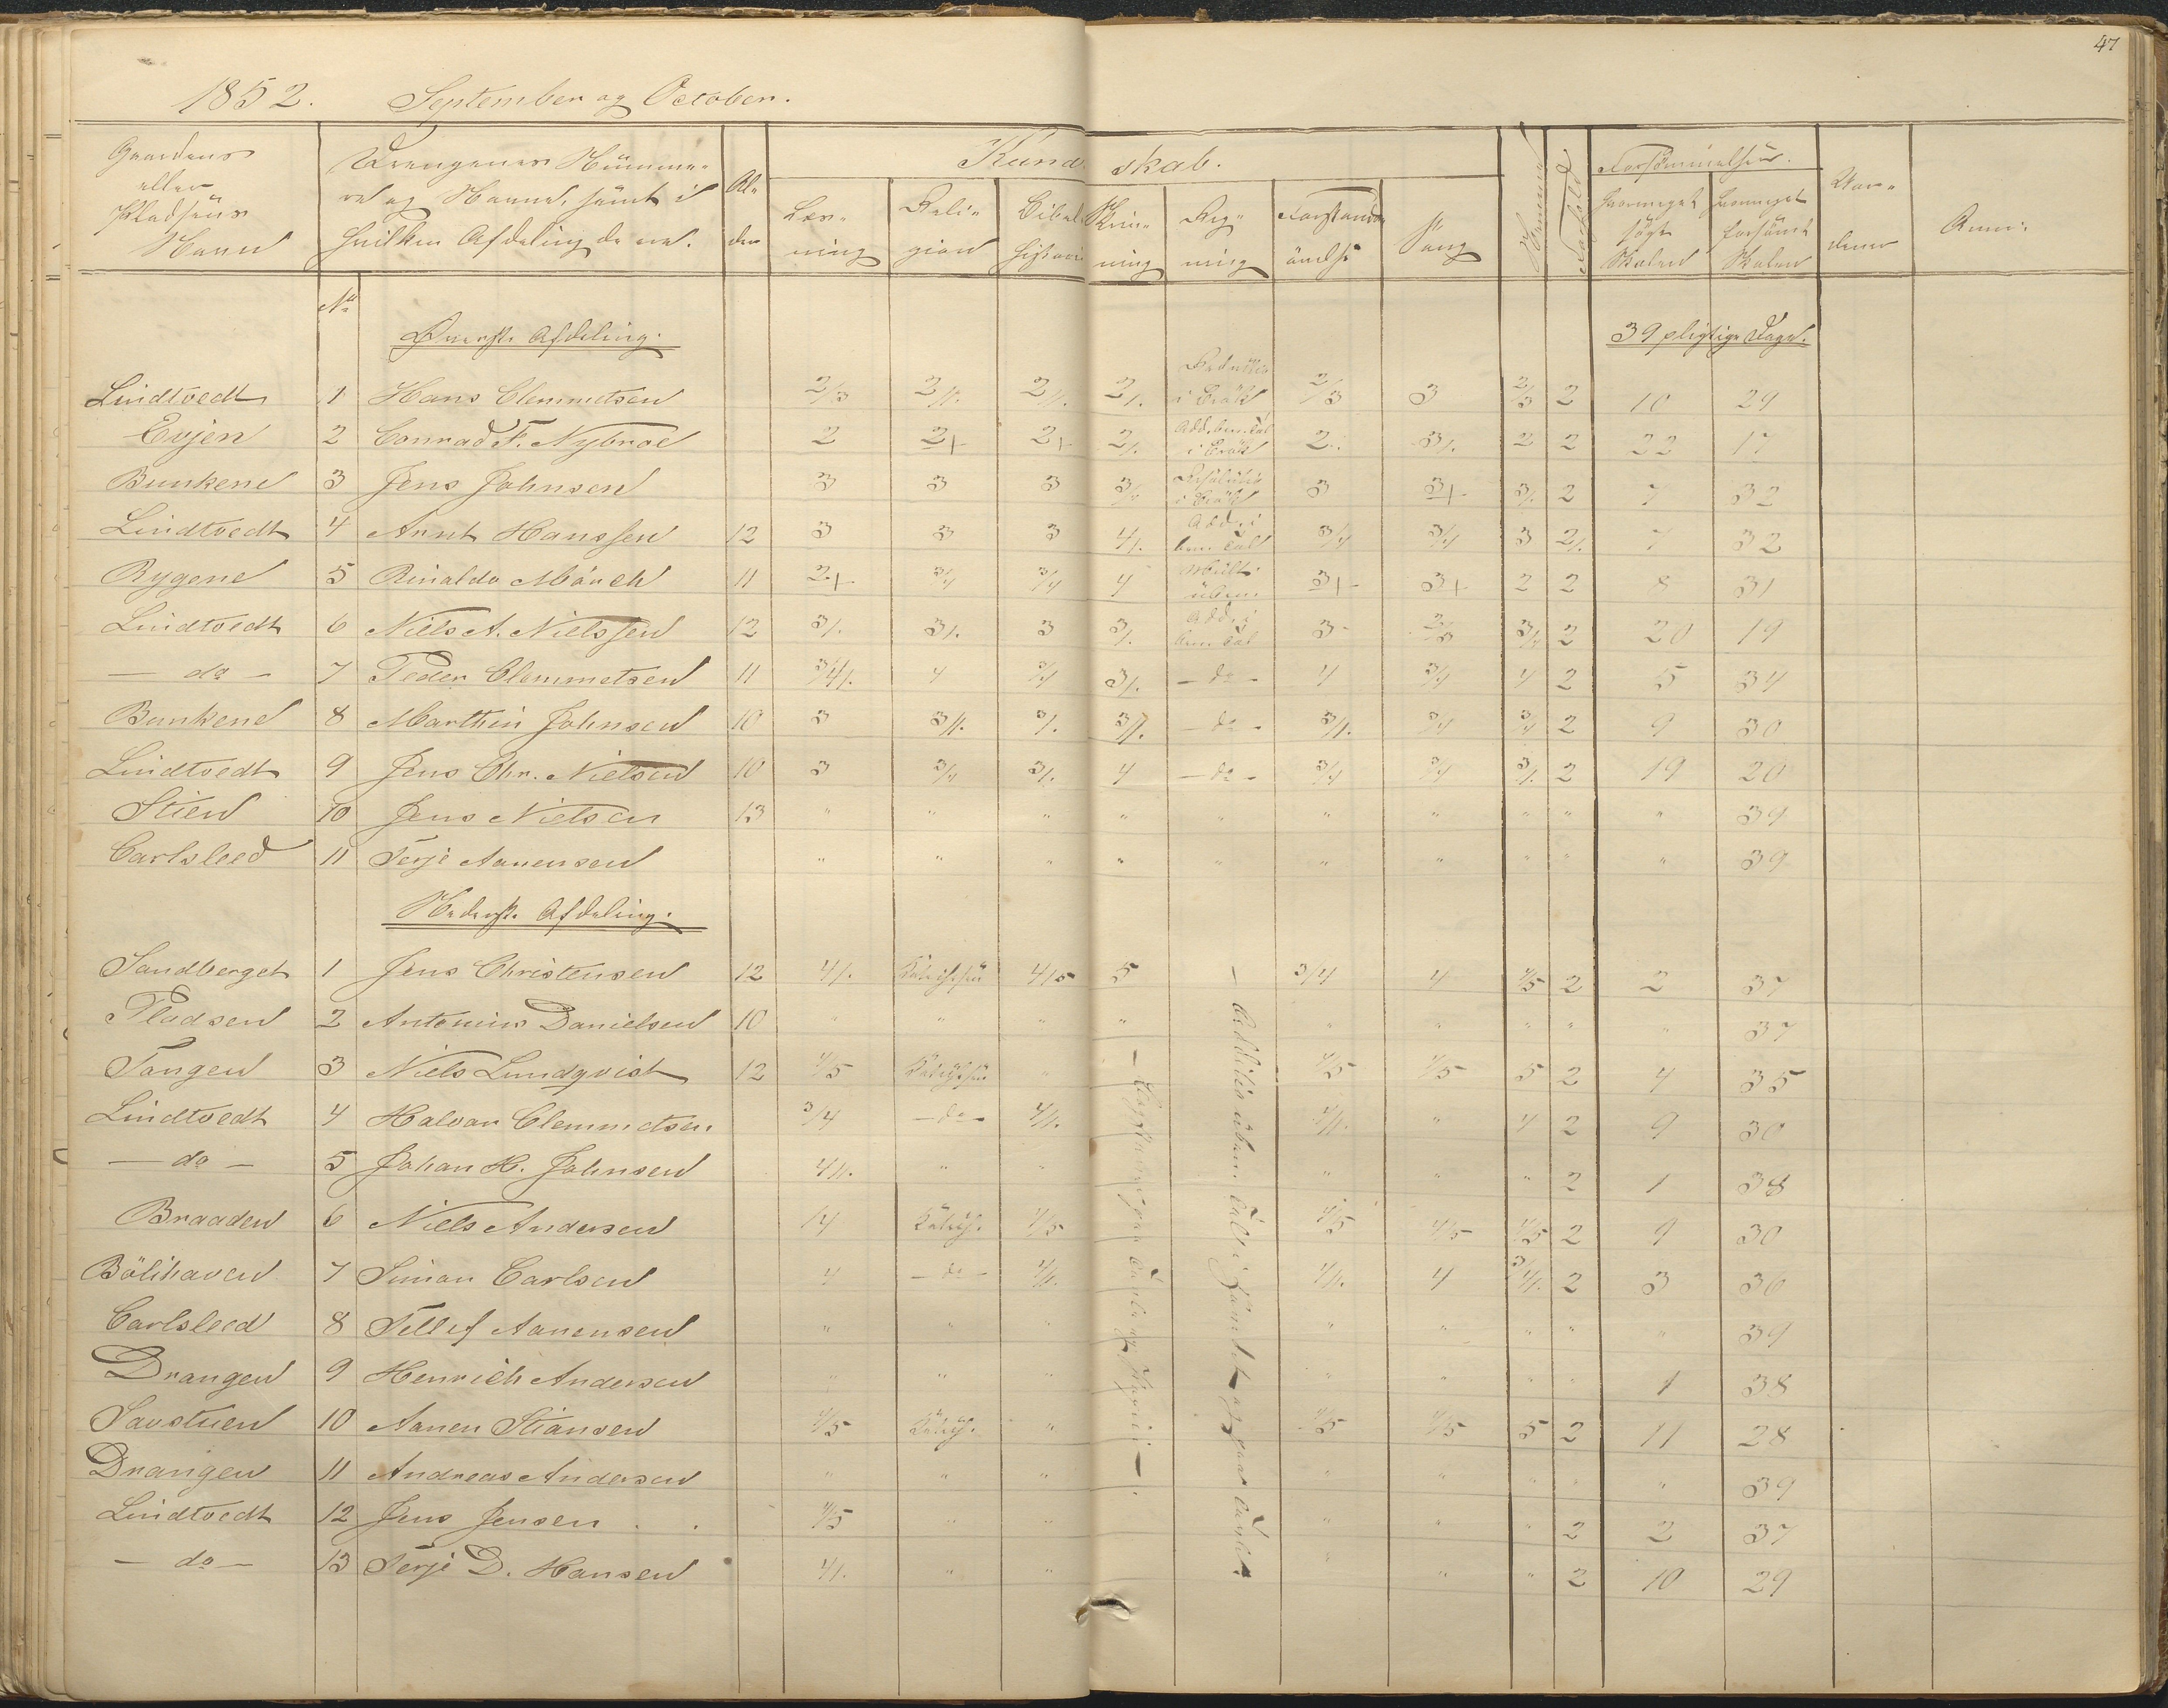 47
1852. September og October.
Gaardens eller Pladsens Navn
Drengenes Numme- og Navne, samt i hvilken Afdeling de ere.
Al- der
Kund- skab.
Læs- ning
Reli- gion
Bibel historie
Skriv- ning
Reg- ning
Forstands- øvelse
Sang
Evner
Forhold
Forsømmelser.
hvormeget søgt Skolen
hvormeget forsømt Skolen
Anm.
No
Øverste Afdeling.
39 pligtige Dage.
Lindtvedt 1 Hans Clemmetsen 2/3 2/1. 2/1. 2/. i Brøk 2/3 3 2/3 2 10 29
Evjen 2 Conrad F. Nybroe 2 2+ 2+ 2/. Add. ben. Tal i Brøk 2 3/. 2 2 22 17
Bunkene 3 Jens Johnsen 3 3 3 i Brøk 3 3+ 3/. 2 7 32
Lindtvedt 4 Arnt Hanssen 12 3 3 3 4/. Add. i ben. Tal 3/4 3/4 3 2/. 7 32
Rygene 5 Rinaldo Mörch 11 2+ 3/4 3/4 4 Mult. uben. 3+ 3+ 2 2 8 31
Lindtvedt 6 Niels A. Nielssen 12 3/. 3/. 3 3/. Add. i ben. Tal 3 2/3 3/4 2 20 19
— do — 7 Peder Clemmetsen 11 3/4/. 4 3/4 3/. — do — 4 3/4 4 2 5 34
Bunkene 8 Marthin Johnsen 10 3 3/1. 3/. 3/1. — do — 3/1. 3/4 3/4 2 9 30
Lindtvedt 9 Jens Chr. Nielsen 10 3 3/4 3/. 4 — do — 3/4 3/4 3/. 2 19 20
Stien 10 Jens Nielsen 13 " " " " " " " " " " 39
Carlsleed 11 Terje Aanensen " " " " " " " " " " 39
Nederste Afdeling.
Sandberget 1 Jens Christensen 12 4/. 4/5 5 3/4 4 4/5 2 2 37
Pladsen 2 Antonius Danielsen 10 " " " " " " " " " 37
Tangen 3 Niels Lundqvist 12 4/5 " 4/5 4/5 5 2 4 35
Lindtvedt 4 Halvor Clemmetsen 3/4 — do — 4/1. 4/1. " 4 2 9 30
— do — 5 Johan H. Johnsen 4/1. " " " " " 2 1 38
Braaden 6 Niels Andersen 14 4/5 4/5 4/5 4/5 2 9 30
Bölihaven 7 Simon Carlsen 4 — do — 4/1. 4/1. 4 3/4/1. 2 3 36
Carlsleed 8 Tellef Aanensen " " " " " " " " 39
Drangen 9 Henrich Andersen " " " " " " " 1 38
Savstuen 10 Aanen Stiansen 4/5 " 4/5 4/5 5 2 11 28
Drangen 11 Andreas Andersen " " " " " " " " 39
Lindtvedt 12 Jens Jensen 4/5 " " " " " 2 2 37
— do — 13 Terje D. Hansen 4/. " " " " " 2 10 29